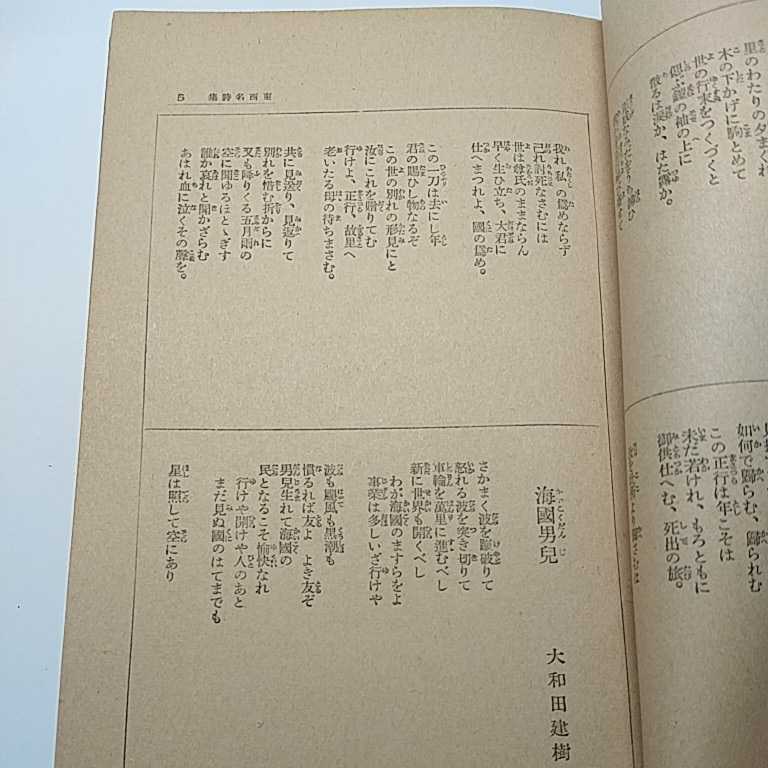 里のわたりの夕まぐれ
木の下かげに駒とめて
世の行末をつくづくと
偲ぶ鎧の袖の上に
散るは涙か、はた露か。
如何で歸らむ、歸られむ
この正行は年こそは
未だ若けれ、もろともに
御供仕へむ、死出の旅。
東西名詩集 5
我れ私の爲めならず
己れ討死なさむには
世は尊氏のままならん
早く生ひ立ち、大君に
仕へまつれよ、國の爲め。
この一刀は去にし年
君の賜ひし物なるぞ
この世の別れの形見にと
汝にこれを贈りてむ
行けよ、正行、故里へ
老いたる母の待ちまさむ。
共に見送り、見返りて
別れを惜む折からに
又も降りくる五月雨の
空に聞ゆるほとゝぎす
誰か哀れと聞かざらむ
あはれ血に泣くその聲を。
海國男兒
大和田建樹
さかまく波を蹴破りて
怒れる波を突き切りて
車輪を萬里に進むべし
新に世界も開くべし
わが海國のますらをよ
事業は多しいざ行けや
波も颶風も黒潮も
慣るれば友よ よき友ぞ
男兒生れて海國の
民となるこそ愉快なれ
行けや開けや人のあと
まだ見ぬ國のはてまでも
星は照して空にあり